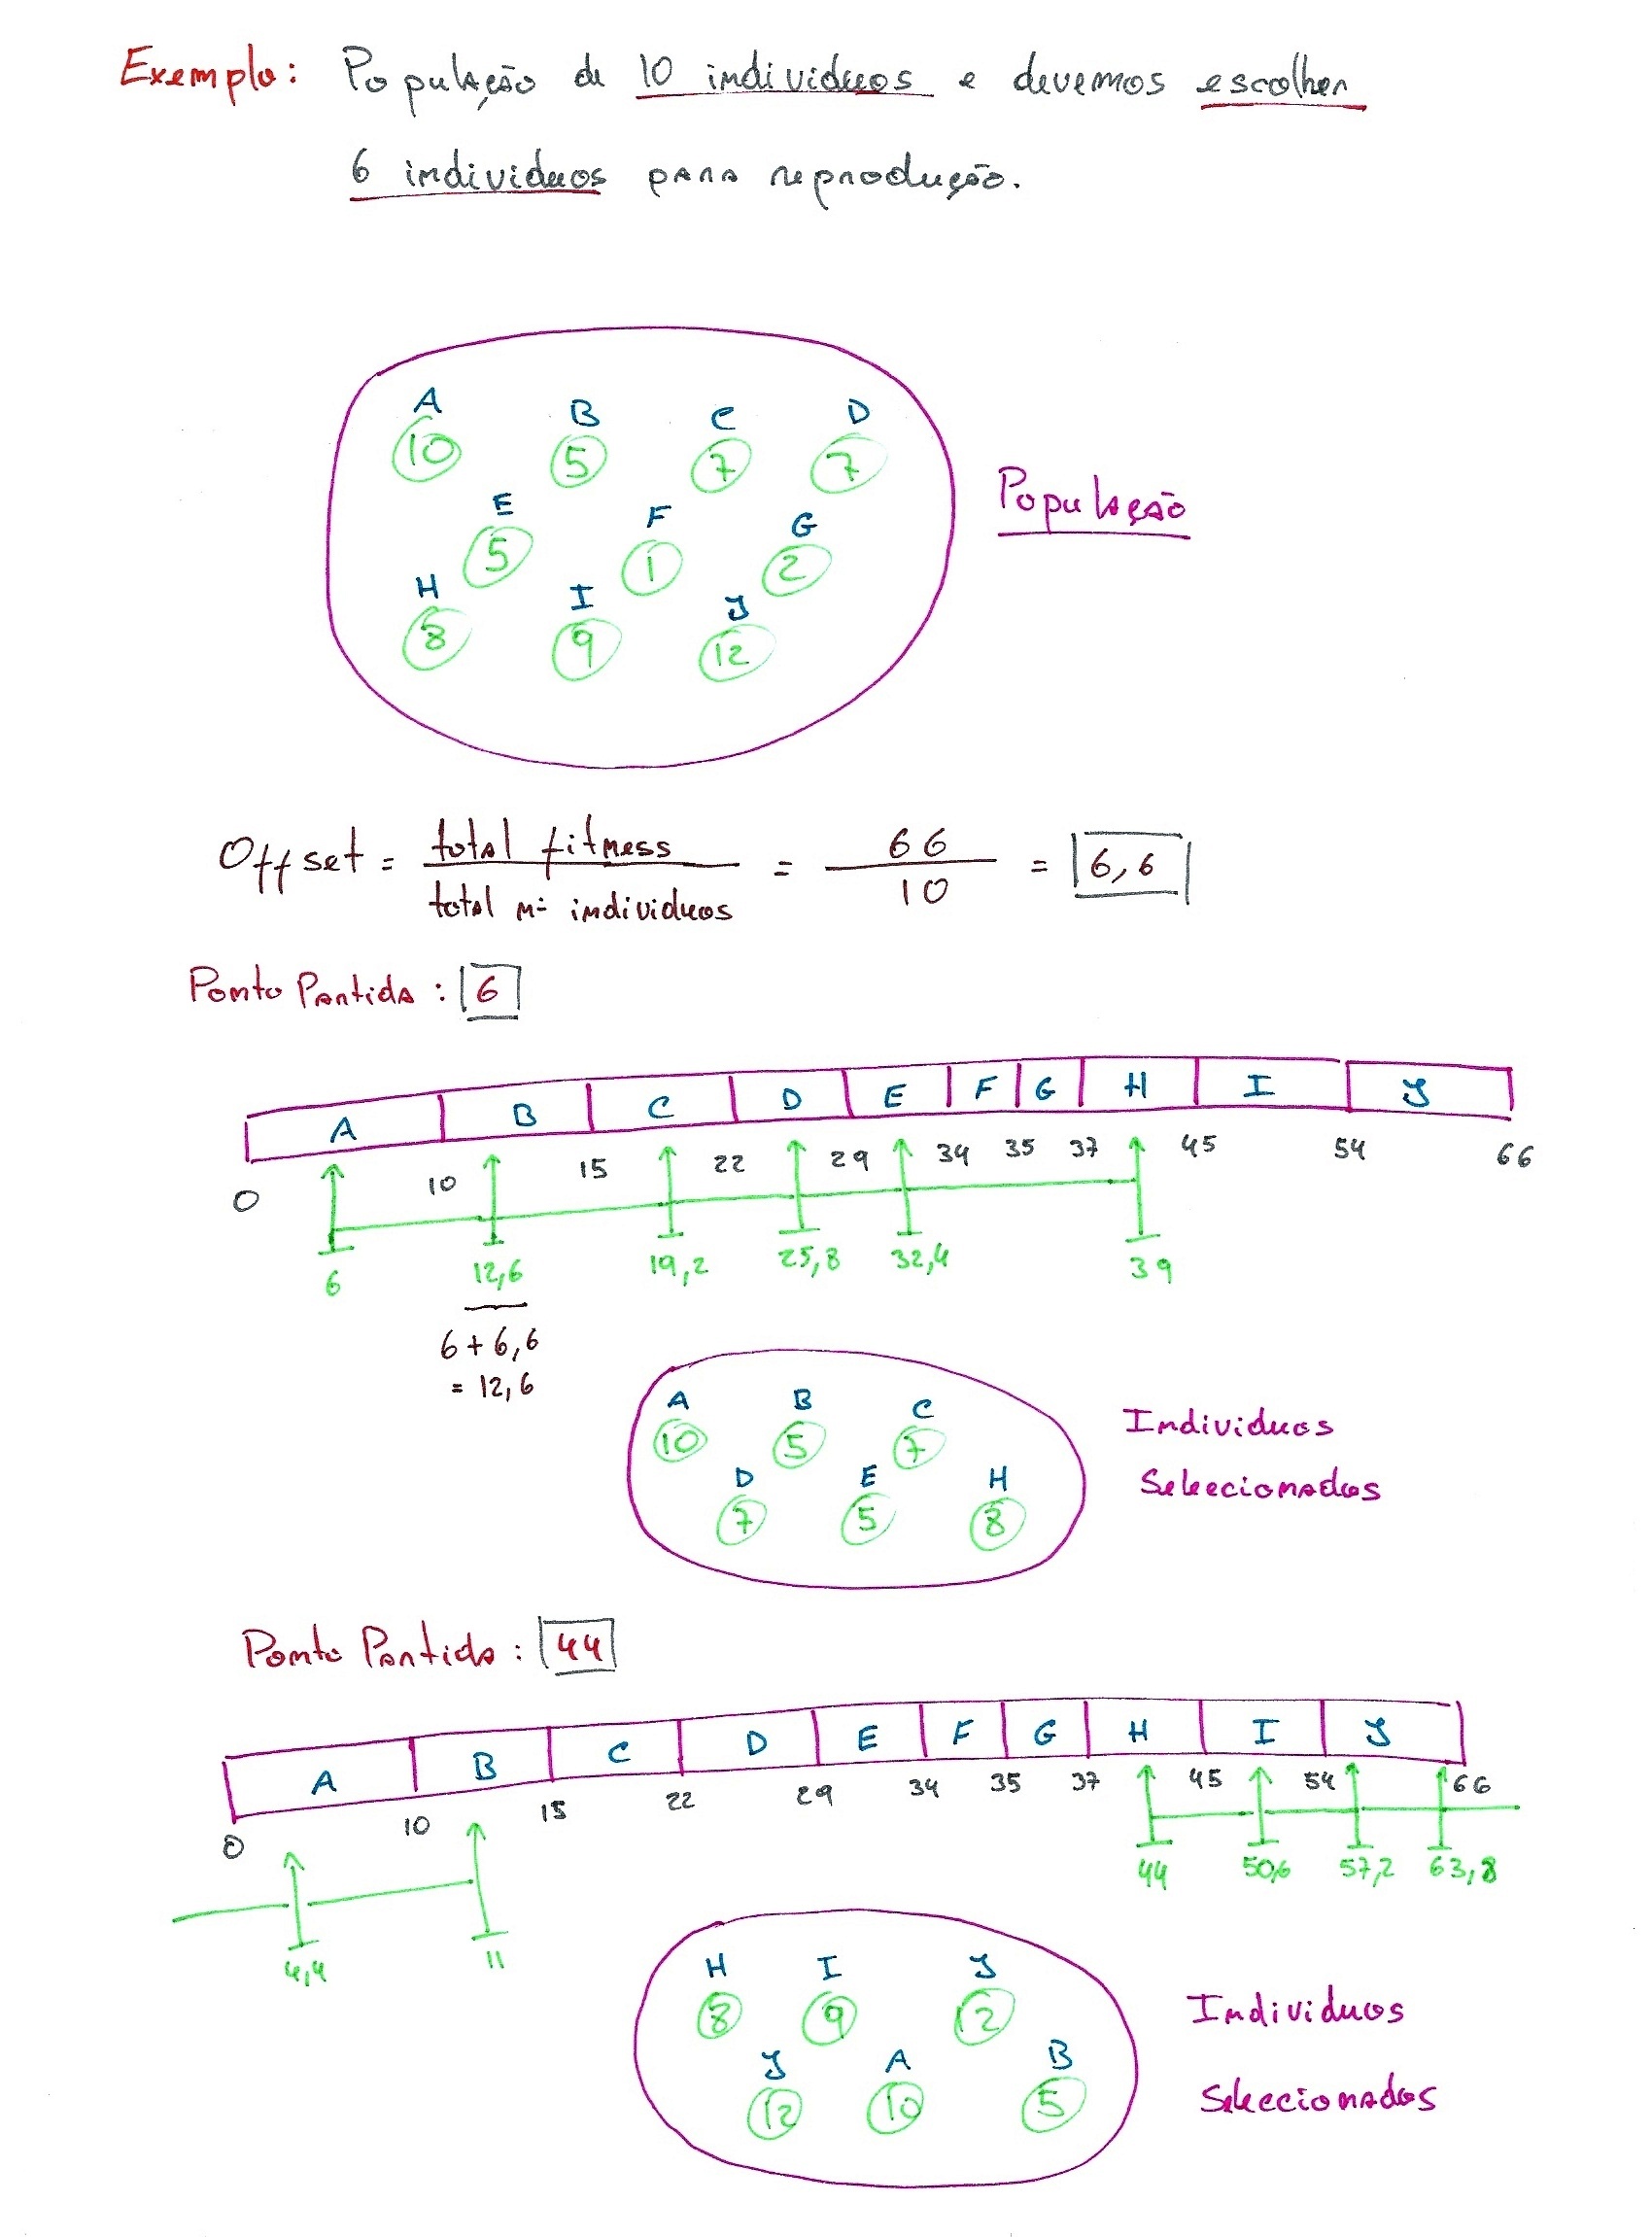 Exemplo: População de 10 individuos e devemos escolher
6 individuos para reprodução.
A B C D
10 5 7 7
E F G
5 1 2
H I J
8 9 12
População
Offset = total fitness / total nº individuos = 66 / 10 = 6,6
Ponto Partida : 6
A B C D E F G H I J
0 10 15 22 29 34 35 37 45 54 66
6 12,6 19,2 25,8 32,4 39
6 + 6,6
= 12,6
A B C
10 5 7
D E H
7 5 8
Individuos
Selecionados
Ponto Partida : 44
A B C D E F G H I J
0 10 15 22 29 34 35 37 45 54 66
4,4 11 44 50,6 57,2 63,8
H I J
8 9 12
J A B
12 10 5
Individuos
Seleccionados